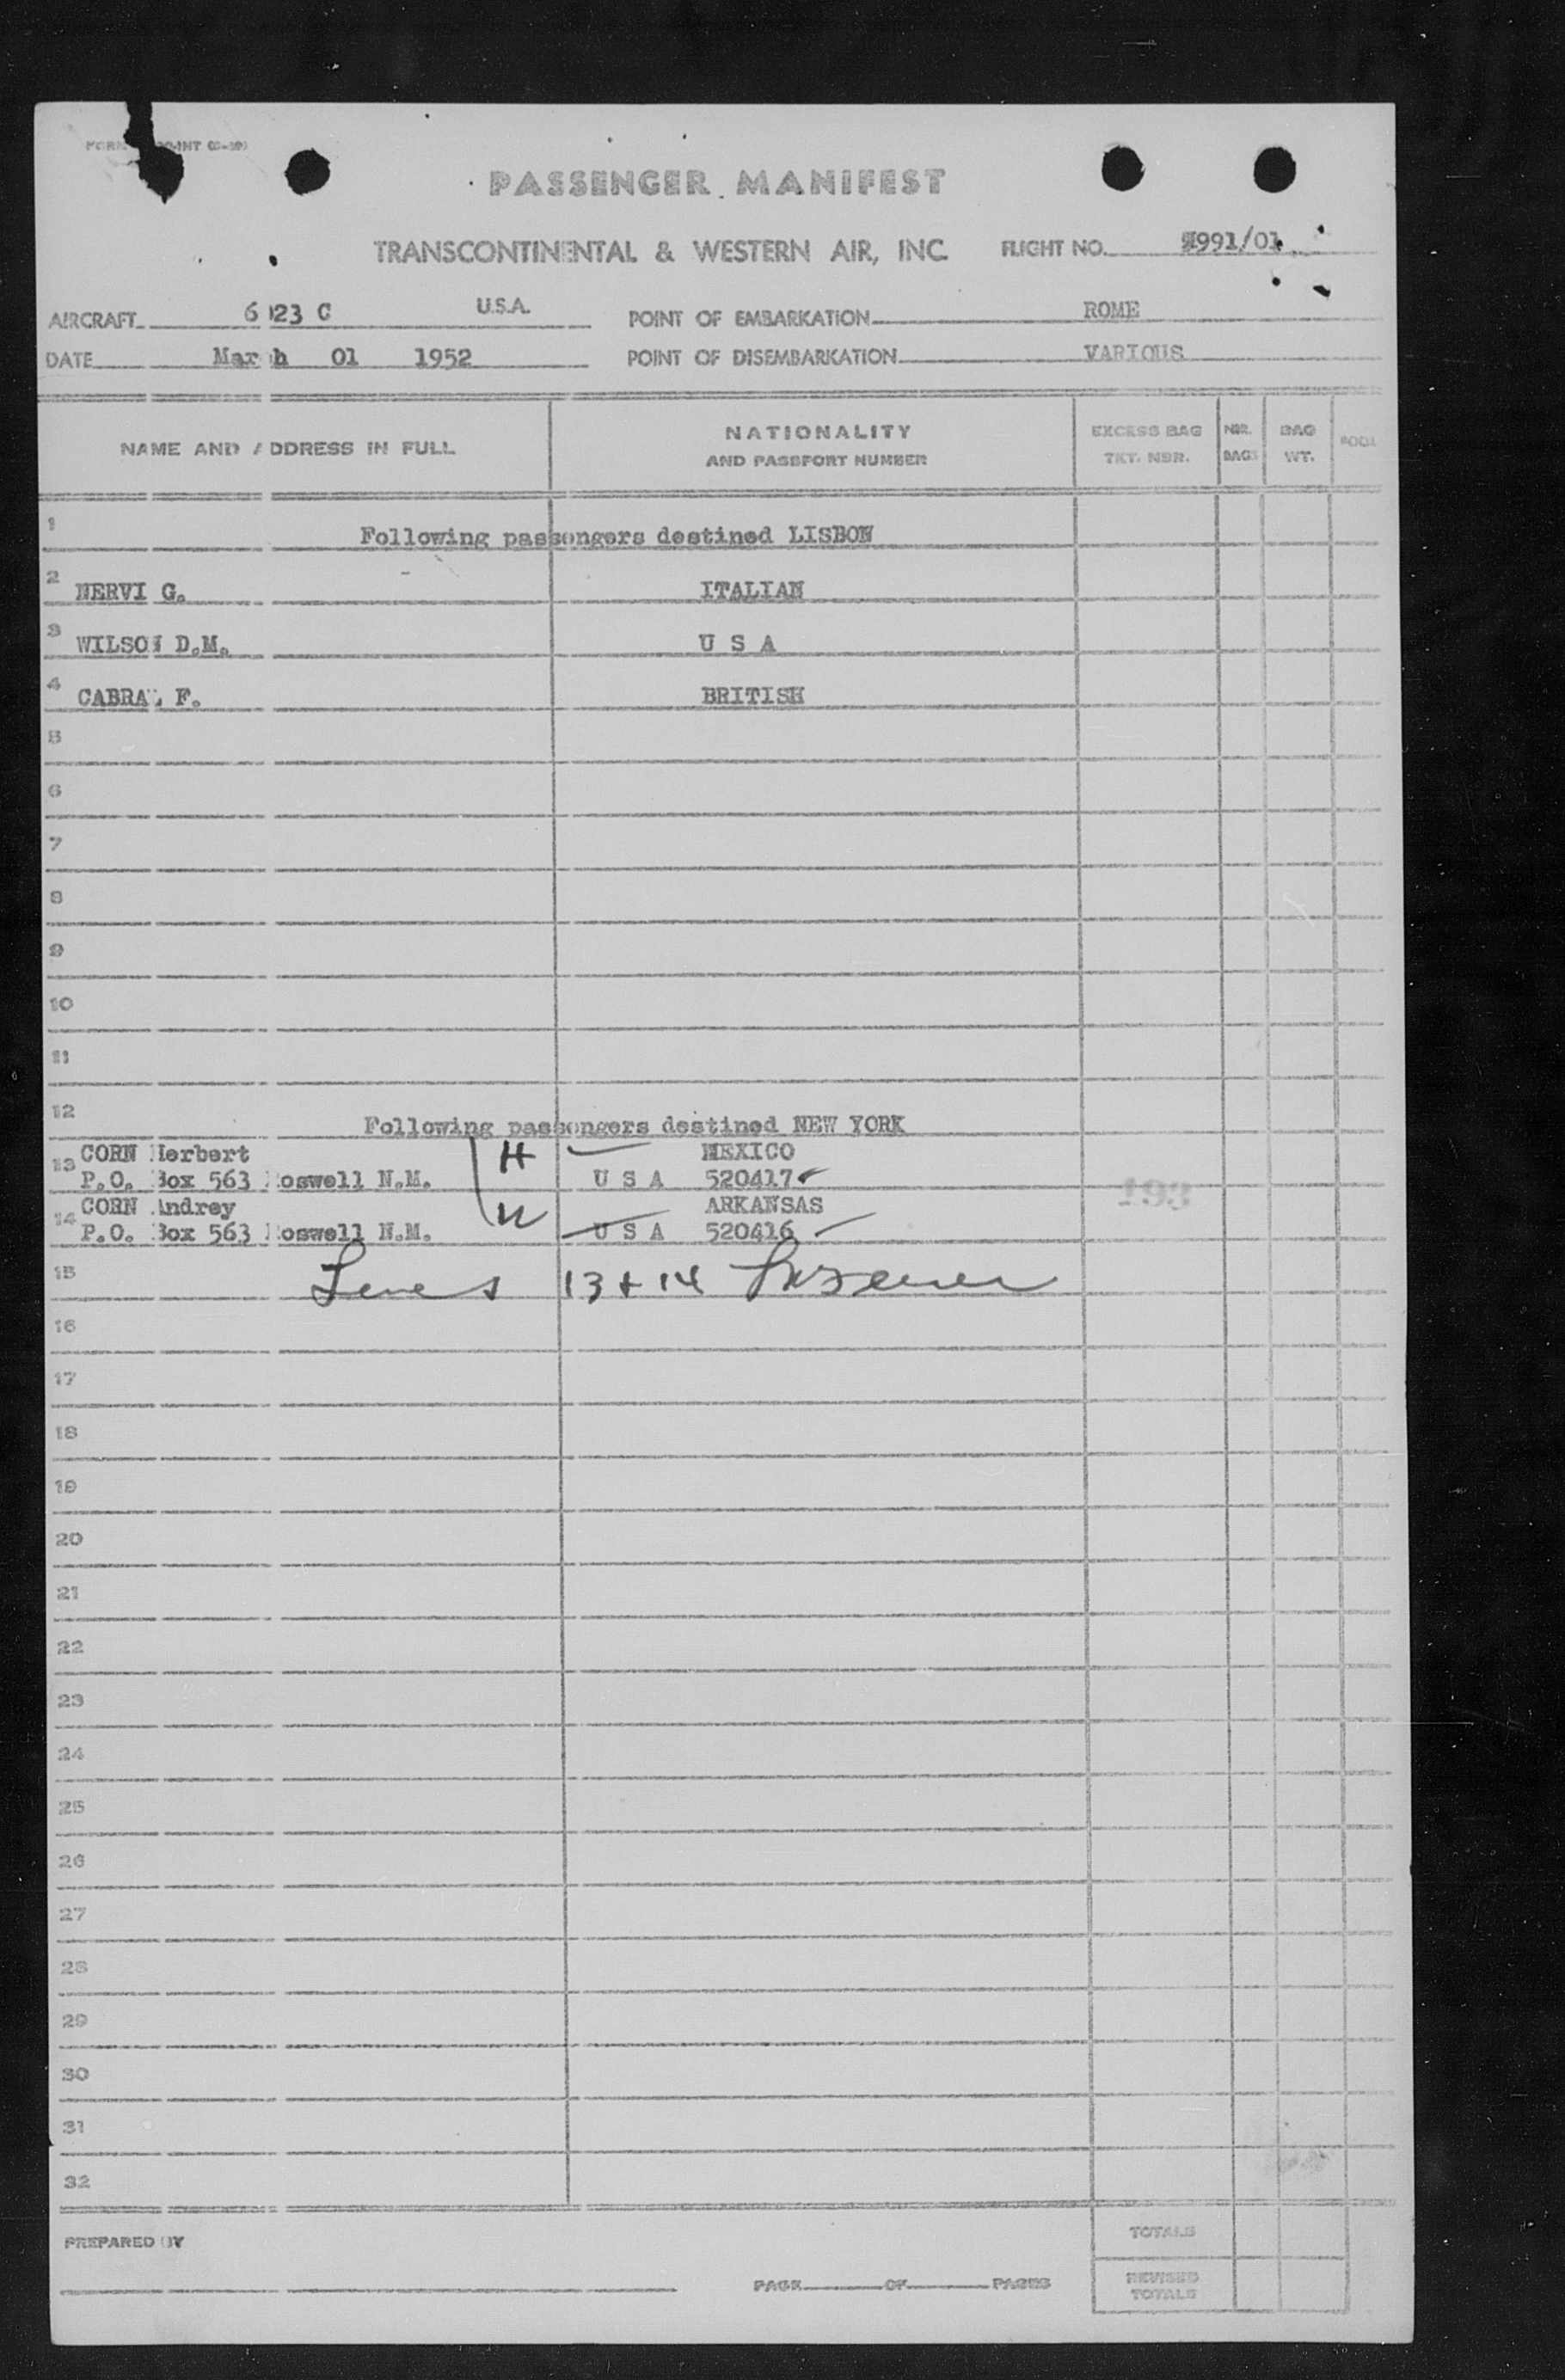 PASSENGER MANIFEST
TRANSCONTINENTAL & WESTERN AIR, INC. FLIGHT NO. 991/01
AIRCRAFT 6023 C U.S.A. POINT OF EMBARKATION ROME
DATE March 01 1952 POINT OF DISEMBARKATION VARIOUS
NAME AND ADDRESS IN FULL
NATIONALITY
AND PASSPORT NUMBER
EXCESS BAG
TKT. NBR.
NBR.
BAGS
BAG
WT.
1 Following passengers destined LISBON
2 NERVI G. ITALIAN
3 WILSON D.M. U S A
4 CABRAL F. BRITISH
5
6
7
8
9
10
11
12 Following passengers destined NEW YORK
13 CORN Herbert H MEXICO
P.O. Box 563 Roswell N.M. U S A 520417
14 CORN Andrey W ARKANSAS
P.O. Box 563 Roswell N.M. U S A 520416
15 Lines 13 + 14
16
17
18
19
20
21
22
23
24
25
26
27
28
29
30
31
32
PREPARED BY
PAGE OF PAGES
TOTALS
REVISED
TOTALS